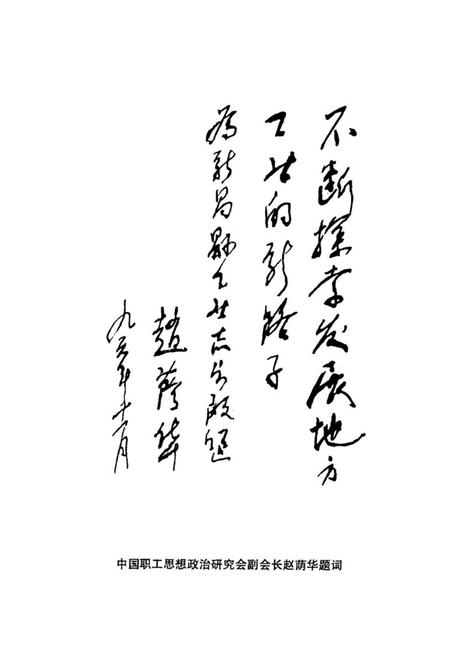 不断探索发展地方
工业的新路子
为新昌县工业志出版题
赵荫华
九三年十一月
中国职工思想政治研究会副会长赵荫华题词